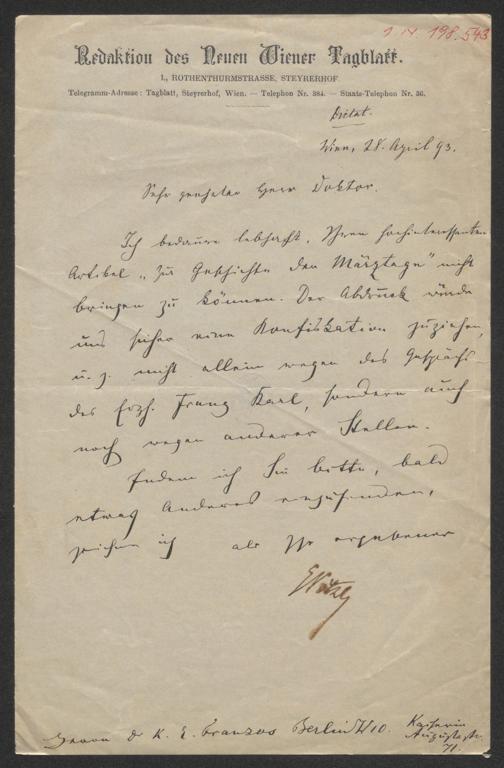 I. N. 198.543
Redaktion des Neuen Wiener Tagblatt.
I., ROTHENTHURMSTRASSE, STEYRERHOF.
Telegramm-Adresse: Tagblatt, Steyrerhof, Wien. — Telephon Nr. 384. — Staats-Telephon Nr. 36.
Dictat.
Wien, 28. April 93.
Sehr geehrter Herr Doktor.
Ich bedaure lebhaft, Ihren hochinteressanten
Artikel „Zur Geschichte der Märztage" nicht
bringen zu können. Der Abdruck würde
uns sicher eine Konfiskation zuziehen,
u. z. nicht allein wegen des Gesprächs
des Erzh. Franz Karl, sondern auch
noch wegen anderer Stellen.
Indem ich Sie bitte, bald
etwas Anderes einzusenden,
zeichne ich als Ihr ergebener
EPötzl
Herrn Dr K. E. Franzos Berlin W 10. Kaiserin
Augustastr.
71.